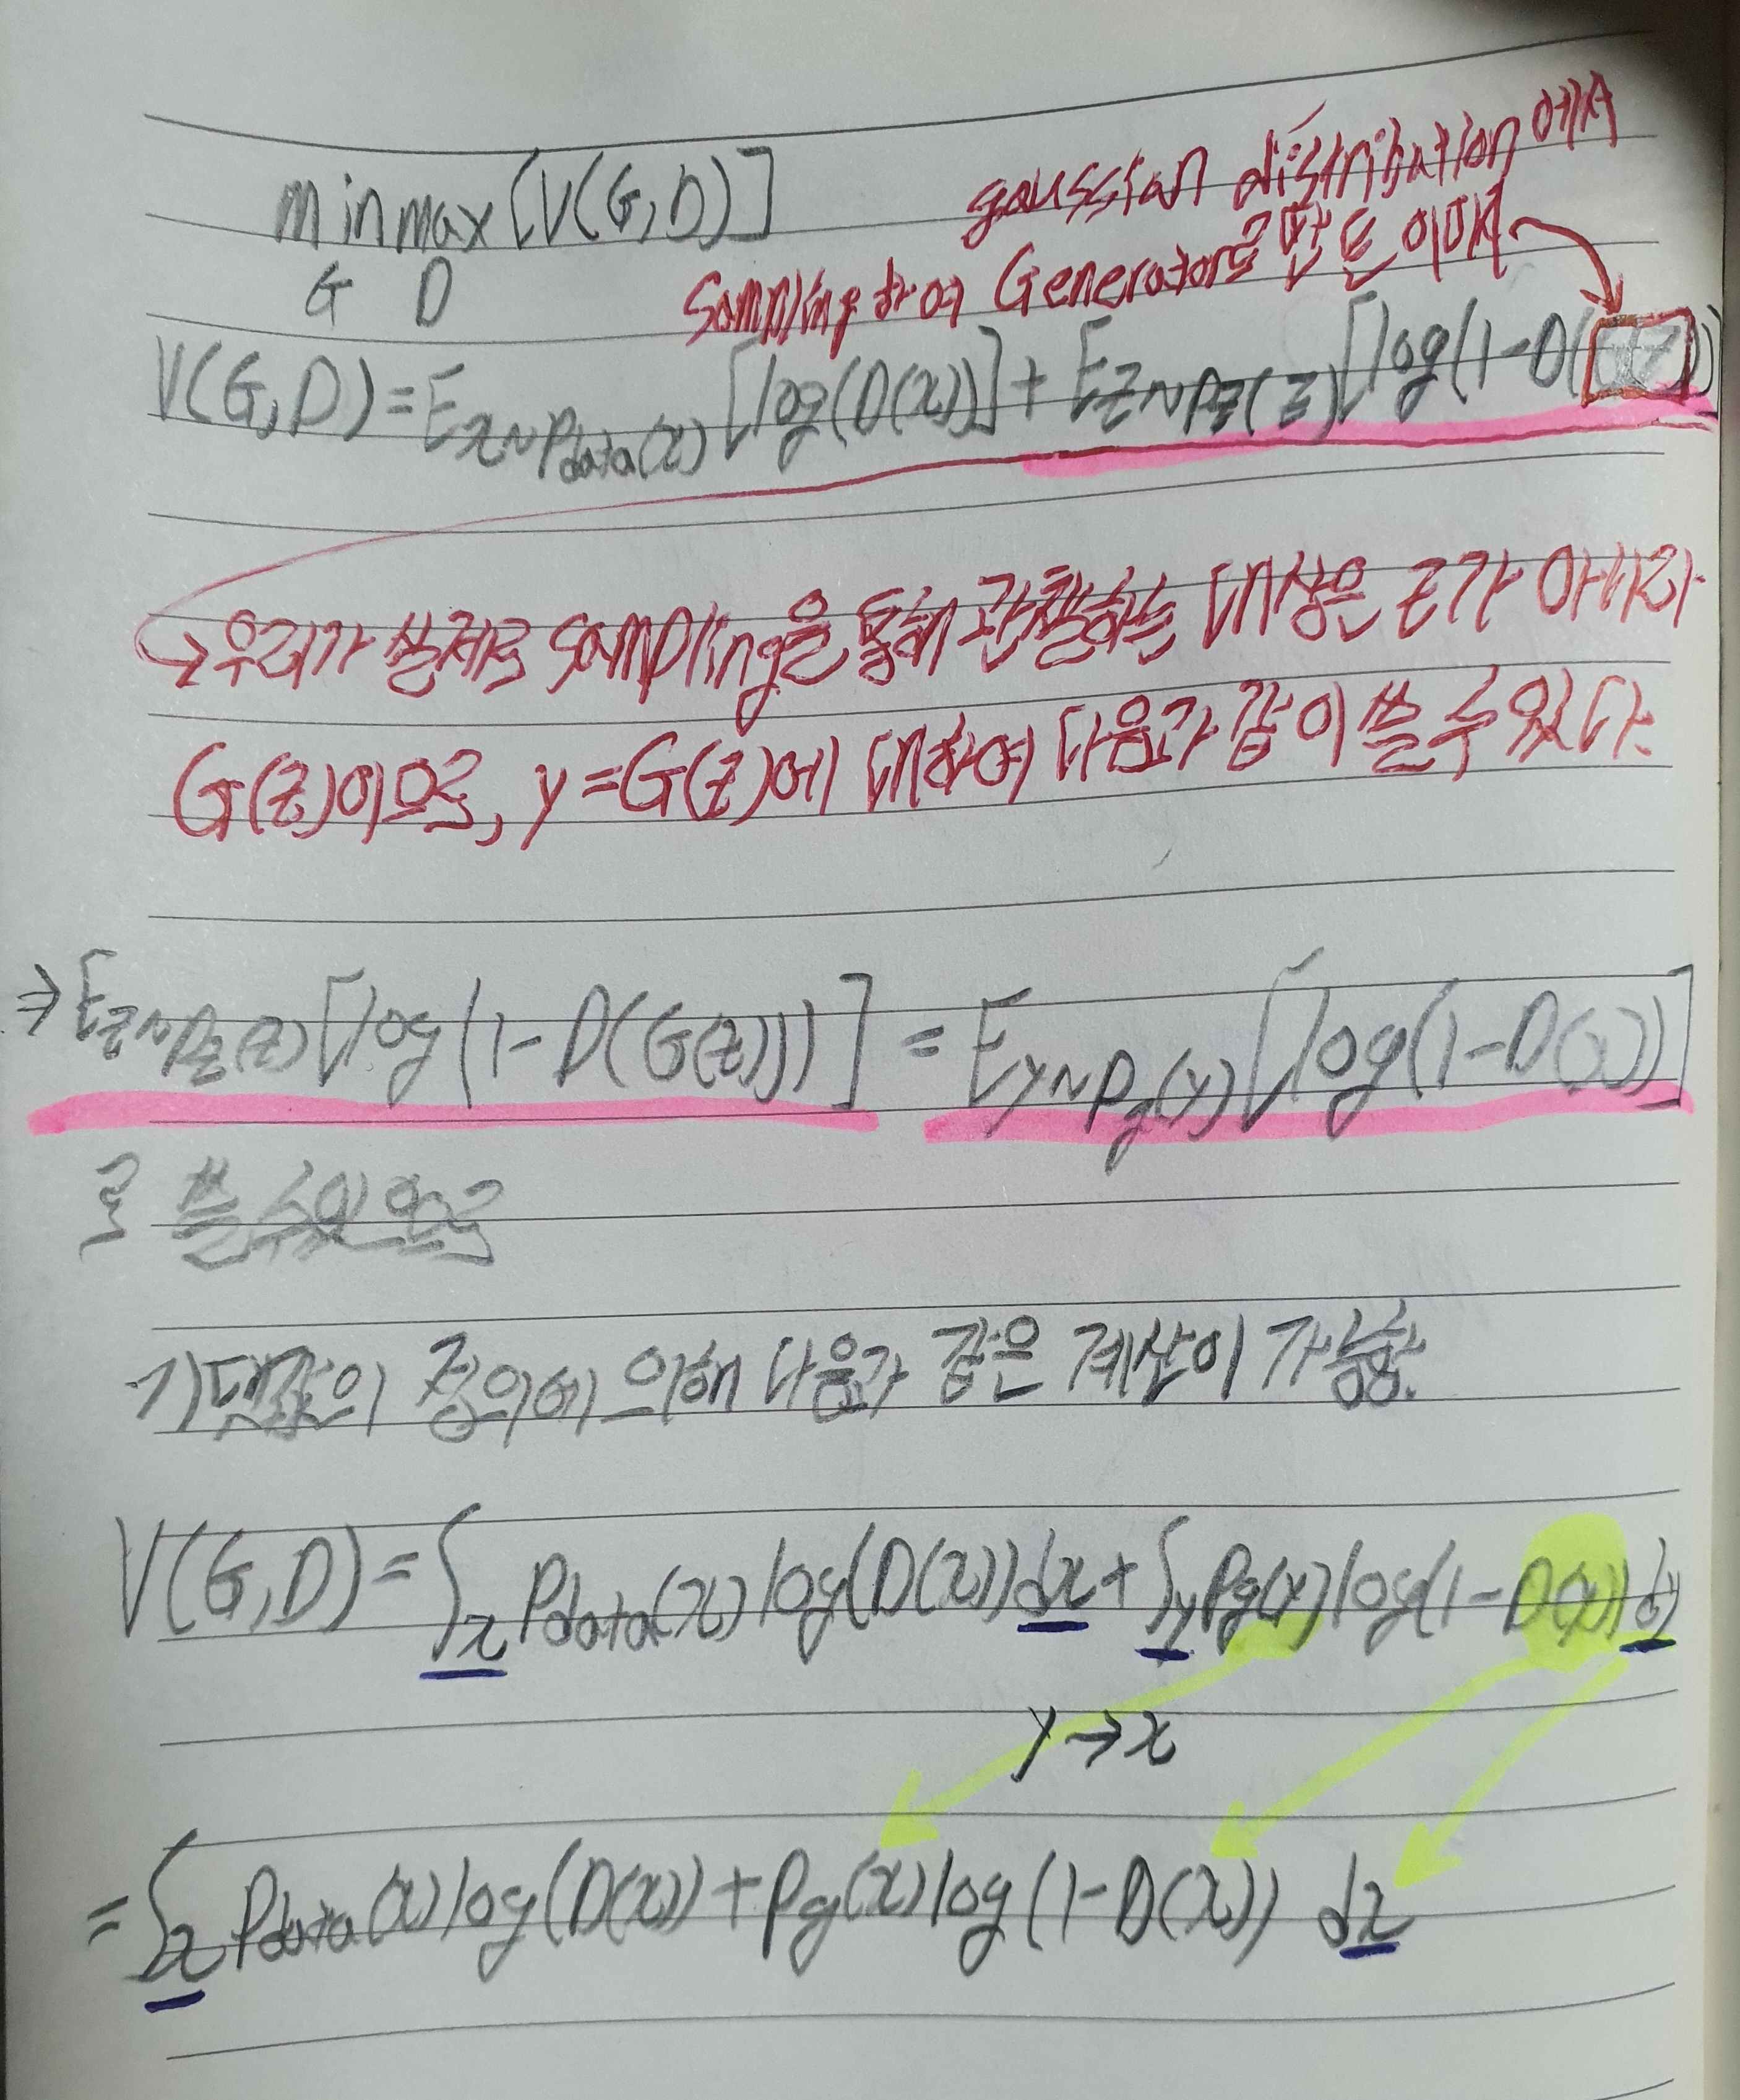 min max [V(G,D)]
G D
gaussian distribution에서
Sampling하여 Generator로 만든 이미지
V(G,D) = E x~Pdata(x) [log(D(x))] + E z~Pz(z) [log(1-D(G(z))
→ 우리가 실제로 sampling을 통해 관찰하는 대상은 z가 아니라
G(z)이므로, y=G(z)에 대하여 다음과 같이 쓸 수 있다.
⇒ E z~Pz(z) [log(1-D(G(z)))] = E y~Pg(y) [log(1-D(y))]
로 쓸 수 있으므로
기댓값의 정의에 의해 다음과 같은 계산이 가능함.
V(G,D) = ∫x Pdata(x) log(D(x)) dx + ∫y Pg(y) log(1-D(y)) dy
y → x
= ∫x Pdata(x) log(D(x)) + Pg(x) log(1-D(x)) dx